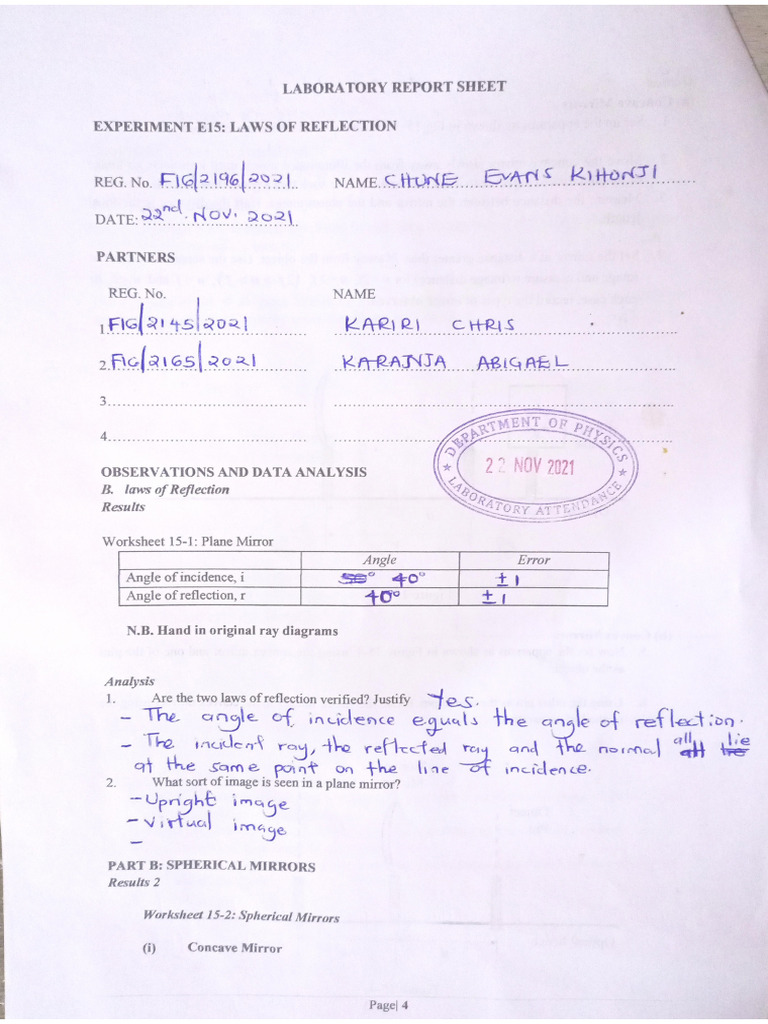 LABORATORY REPORT SHEET
EXPERIMENT E15: LAWS OF REFLECTION
REG. No. FIG/2196/2021 NAME. CHUNE EVANS KIHONJI
DATE: 22nd. NOV. 2021
PARTNERS
REG. No. NAME
1. FIG/2145/2021 KARIRI CHRIS
2. FIG/2165/2021 KARANJA ABIGAEL
3.
4.
DEPARTMENT OF PHYSICS
22 NOV 2021
LABORATORY ATTENDANCE
OBSERVATIONS AND DATA ANALYSIS
B. laws of Reflection
Results
Worksheet 15-1: Plane Mirror
Angle Error
Angle of incidence, i 50° 40° ±1
Angle of reflection, r 40° ±1
N.B. Hand in original ray diagrams
Analysis
1. Are the two laws of reflection verified? Justify Yes.
- The angle of incidence equals the angle of reflection.
- The incident ray, the reflected ray and the normal all lie
at the same point on the line of incidence.
2. What sort of image is seen in a plane mirror?
- Upright image
- Virtual image
-
PART B: SPHERICAL MIRRORS
Results 2
Worksheet 15-2: Spherical Mirrors
(i) Concave Mirror
Page| 4